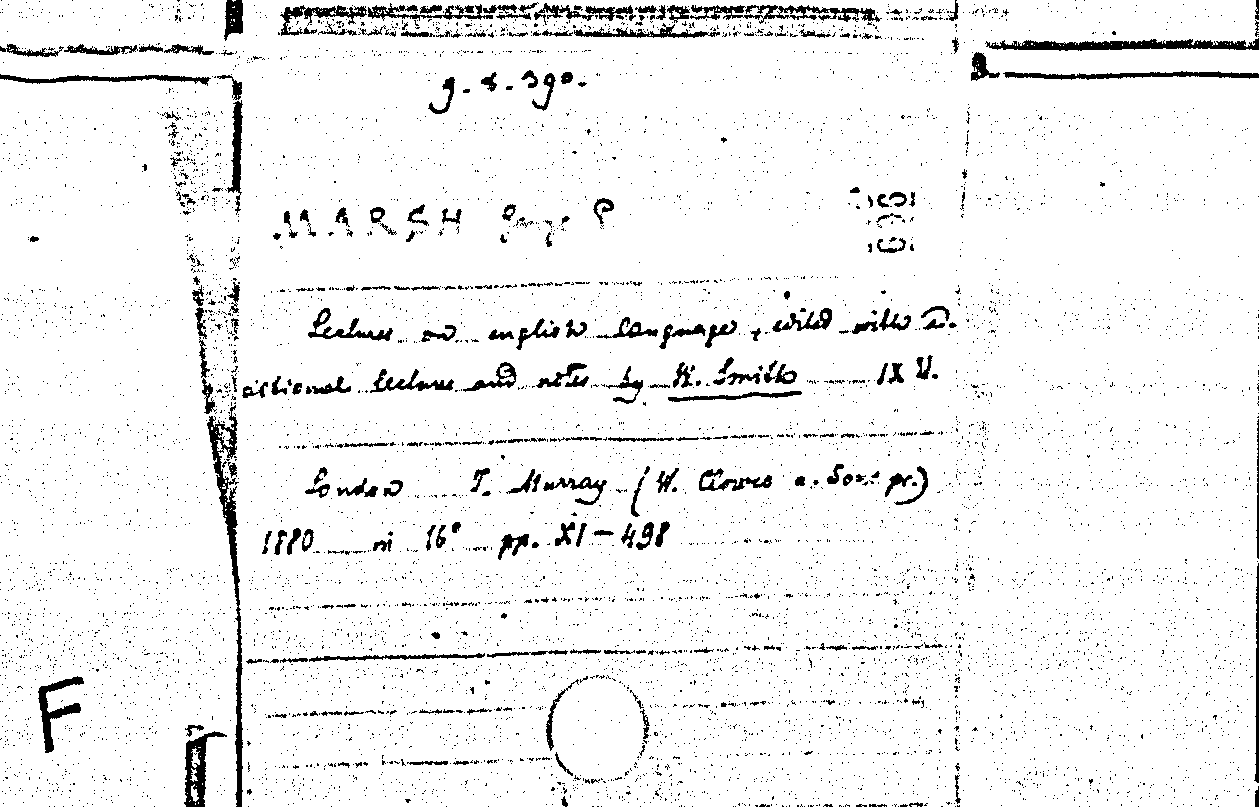 g. 8. 390.
MARSH George P
Lectures on english language, edited with ad.
ditional lectures and notes by W. Smith IX V.
London J. Murray (W. Clowes a. Sons pr.)
1880 in 16° pp. XI - 498
F